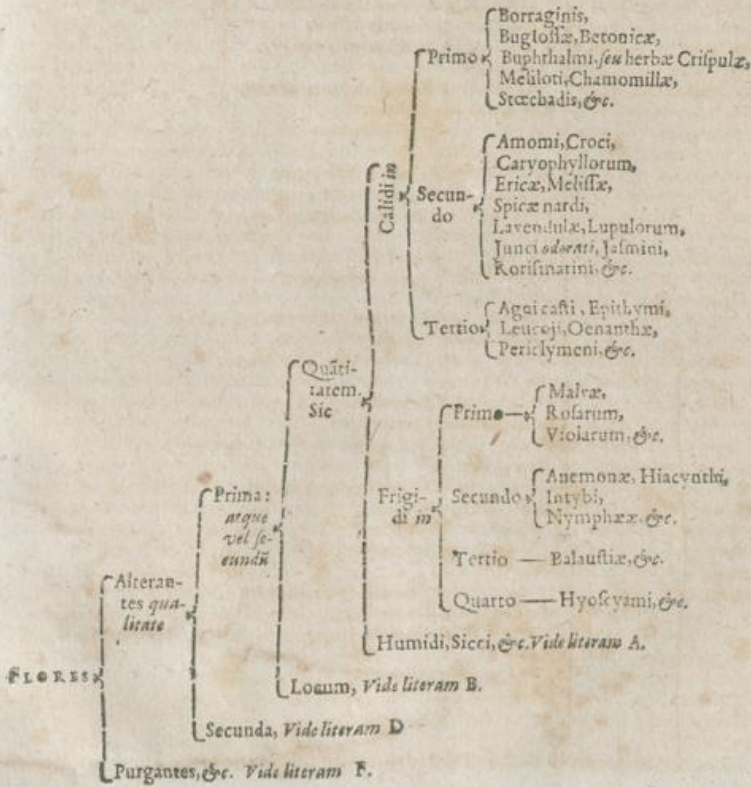 Borraginis,
Buglossæ, Betonicæ,
Primo Buphthalmi, seu herbæ Crispulæ,
Meliloti, Chamomillæ,
Stœchadis, &c.
Calidi in
Amomi, Croci,
Caryophyllorum,
Ericæ, Melissæ,
Secun-
do
Spicæ nardi,
Lavendulæ, Lupulorum,
Junci odorati, Jasmini,
Rorismarini, &c.
Agni casti, Epithymi,
Tertio Leucoji, Oenanthæ,
Periclymeni, &c.
Quãti-
tatem.
Sic
Malvæ,
Primo Rosarum,
Violarum, &c.
Frigi-
di in
Anemonæ, Hiacynthi,
Secundo Intybi,
Nymphææ, &c.
Tertio — Balaustiæ, &c.
Quarto — Hyoscyami, &c.
Prima:
atque
vel se-
cundũ
Alteran-
tes qua-
litate
Humidi, Sicci, &c. Vide literam A.
FLORES
Locum, Vide literam B.
Secunda, Vide literam D
Purgantes, &c. Vide literam F.